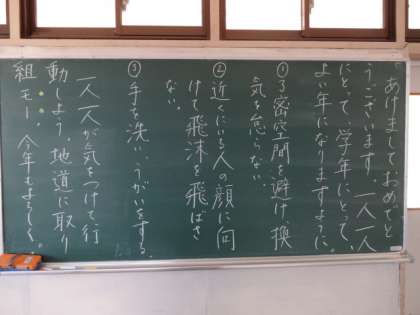 あけましておめでと
うございます。一人一人
にとって、学年にとって、
よい年になりますように。
①3密空間を避け、換
気を怠らない。
②近くにいる人の顔に向
けて飛沫を飛ばさ
ない。
③手を洗い、うがいをする。
一人一人が気をつけて行
動しよう。地道に取り
組モー。今年もよろしく。